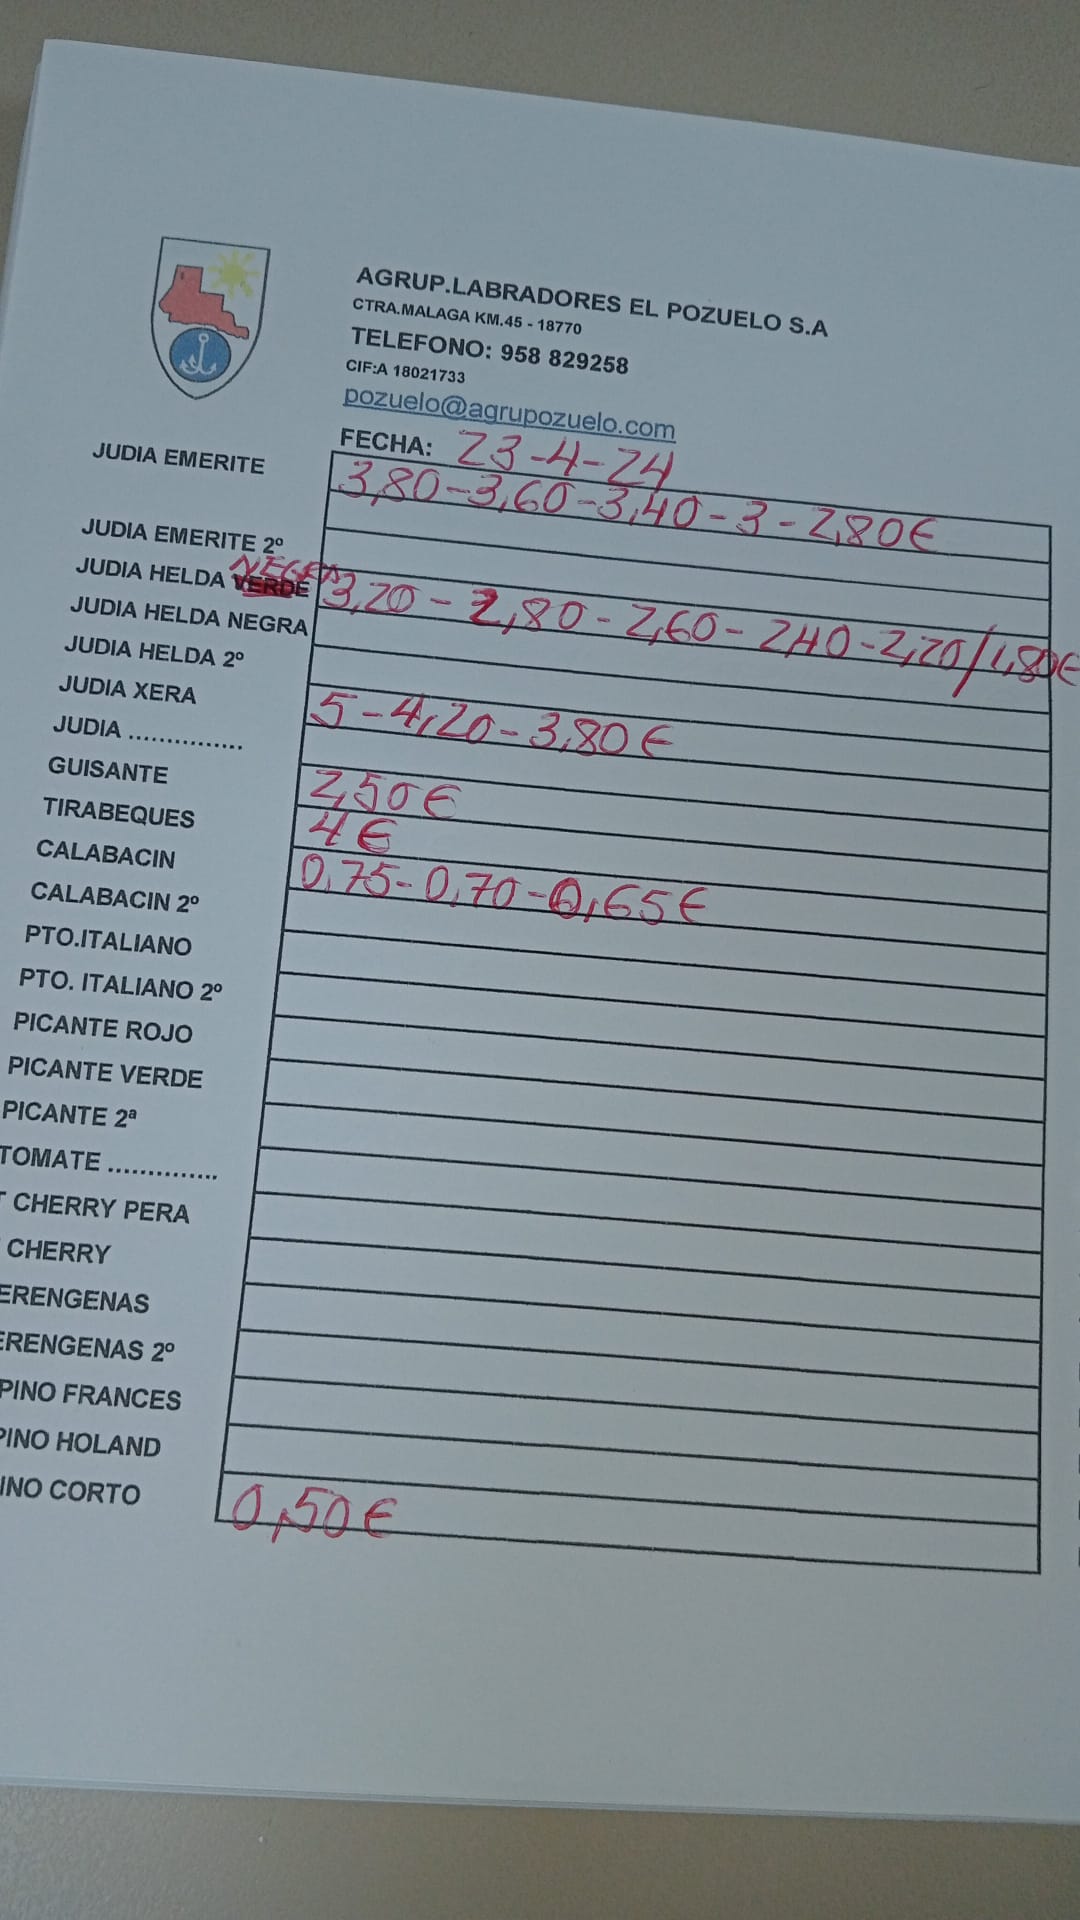 AGRUP.LABRADORES EL POZUELO S.A
CTRA.MALAGA KM.45 - 18770
TELEFONO: 958 829258
CIF:A 18021733
pozuelo@agrupozuelo.com
FECHA: 23-4-24
JUDIA EMERITE 3,80-3,60-3,40-3-2,80€
JUDIA EMERITE 2º
JUDIA HELDA VERDE NEGRA 3,20-2,80-2,60-2,40-2,20/1,80€
JUDIA HELDA NEGRA
JUDIA HELDA 2º
JUDIA XERA 5-4,20-3,80€
JUDIA ...............
GUISANTE 2,50€
TIRABEQUES 4€
CALABACIN 0,75-0,70-0,65€
CALABACIN 2º
PTO.ITALIANO
PTO. ITALIANO 2º
PICANTE ROJO
PICANTE VERDE
PICANTE 2ª
TOMATE ..............
T CHERRY PERA
CHERRY
ERENGENAS
ERENGENAS 2º
PINO FRANCES
PINO HOLAND
INO CORTO 0,50€